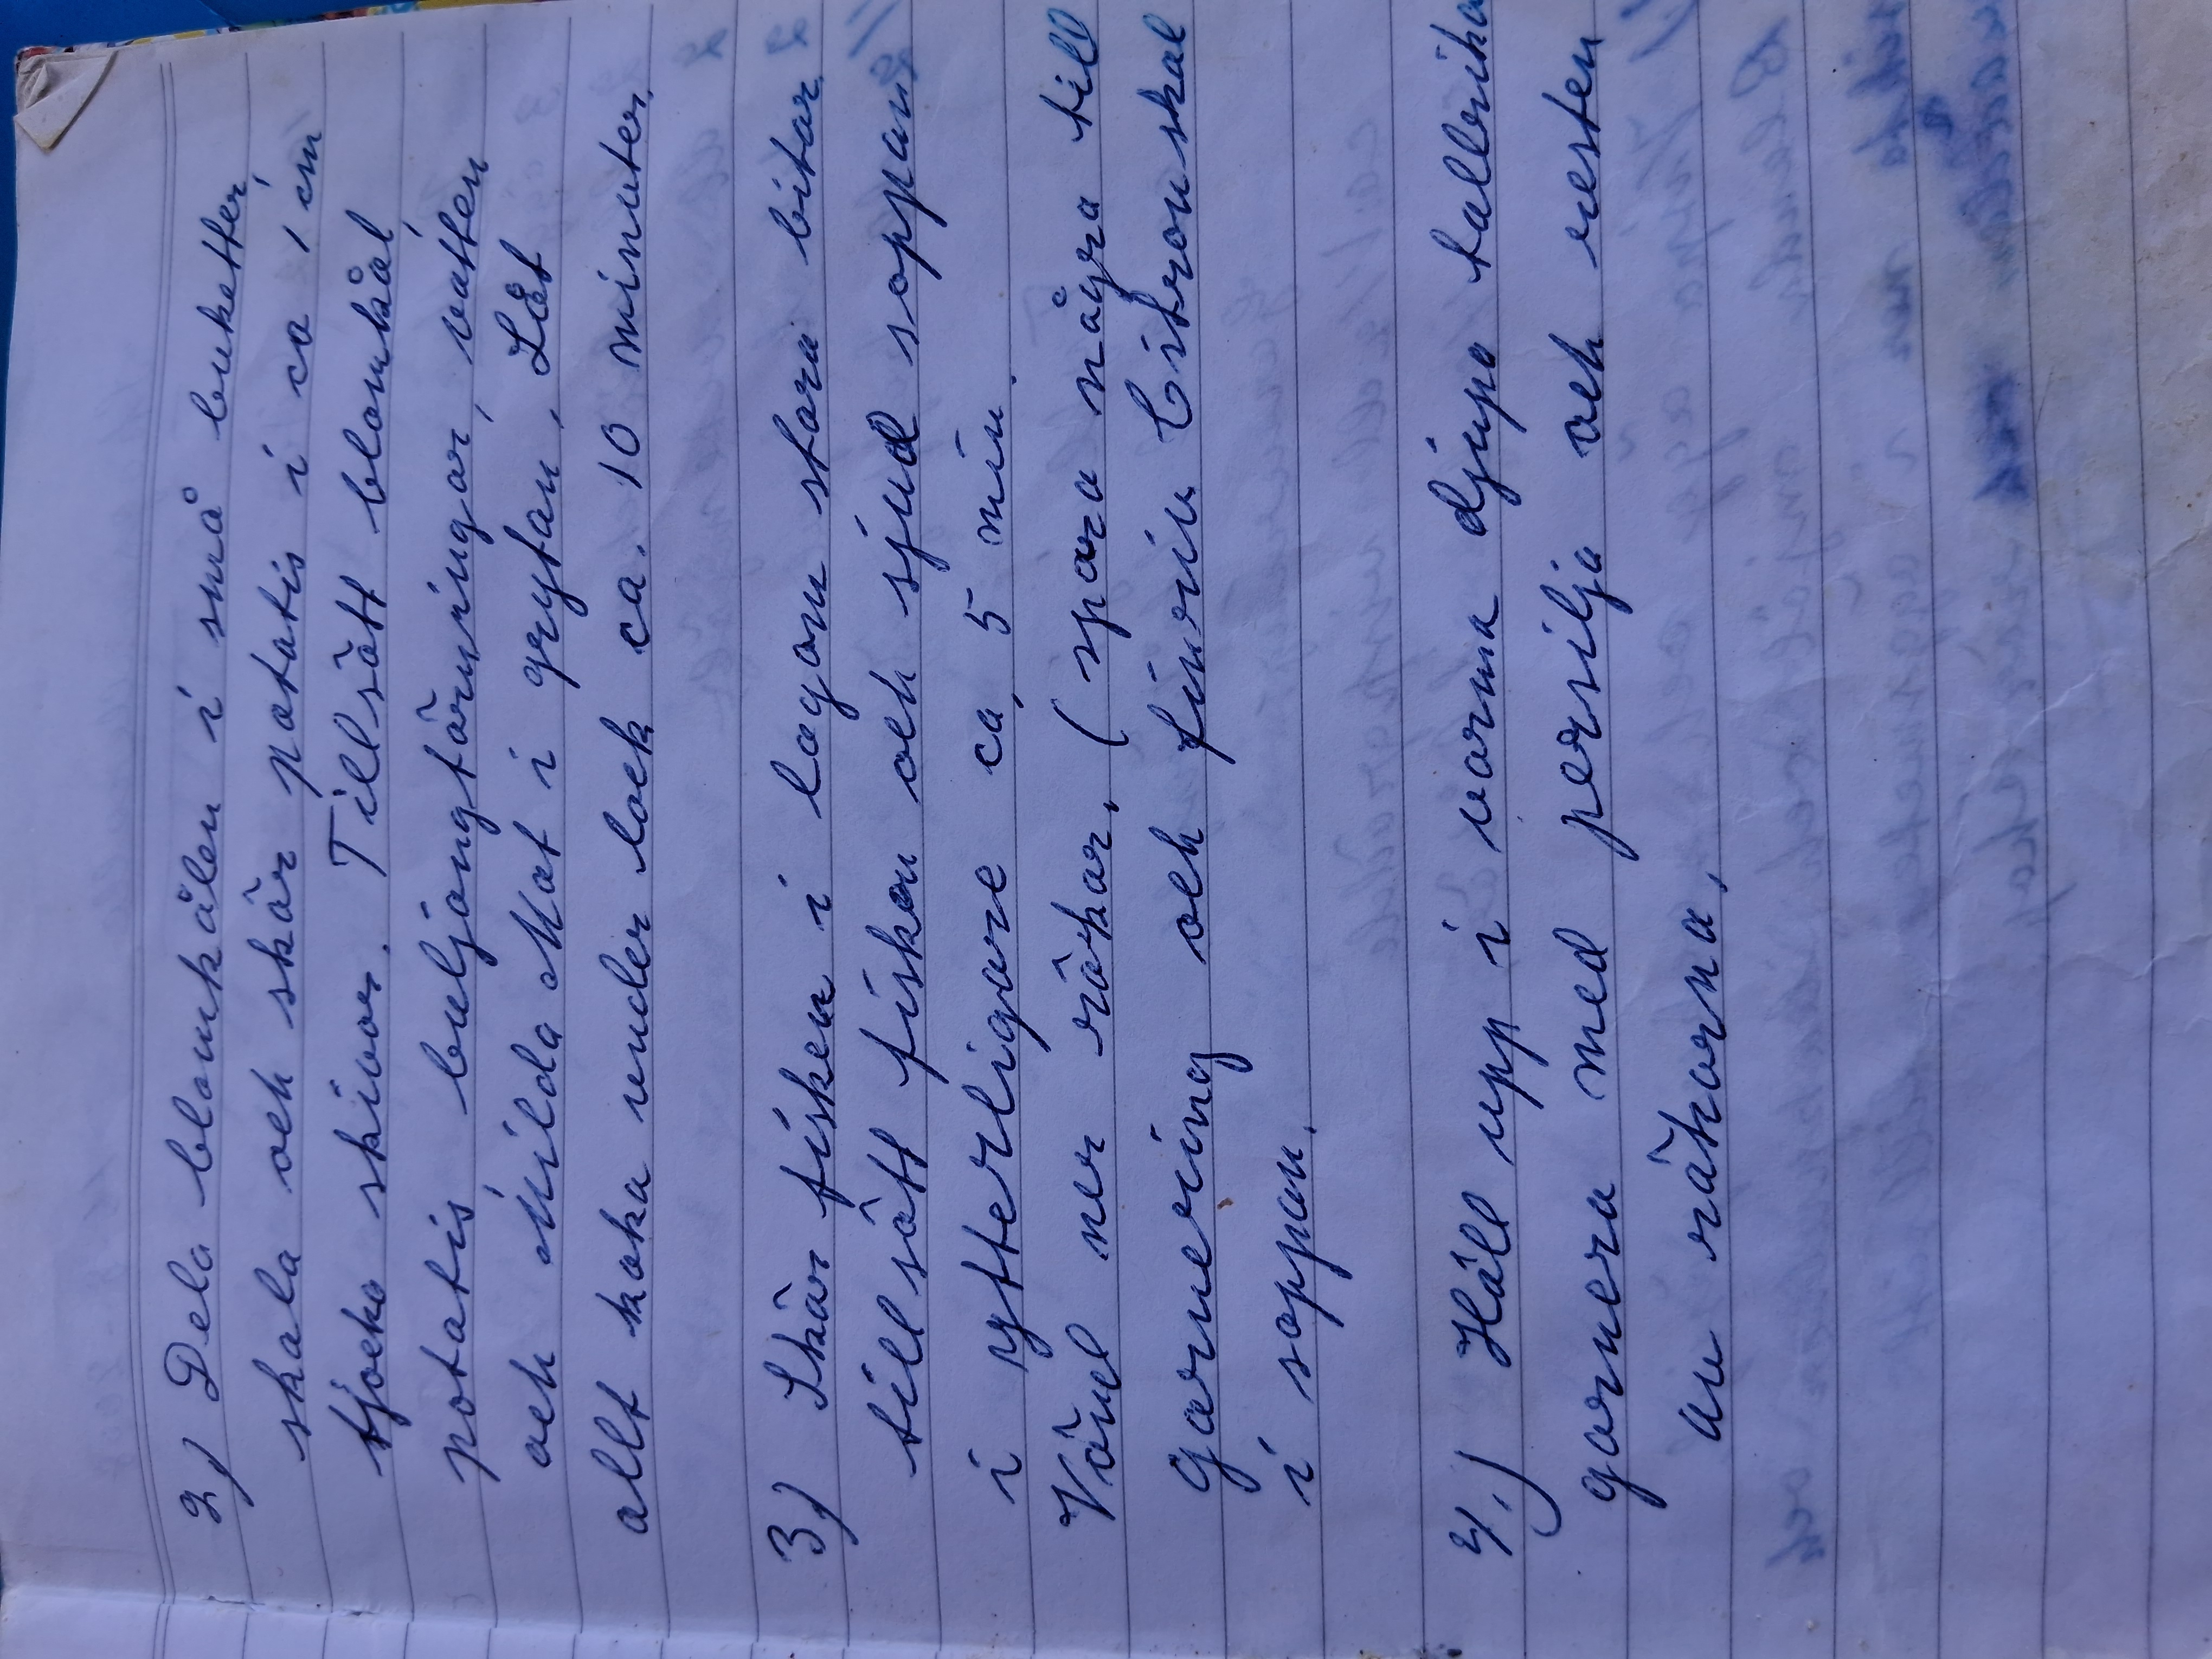 2) Dela blomkålen i små buketter,
skala och skär potatis i ca 1 cm
tjocka skivor. Tillsätt blomkål,
potatis, buljongtärningar, vatten
och Milda Mat i grytan. Låt
allt koka under lock ca. 10 minuter.
3) Skär fisken i lagom stora bitar
tillsätt fisken och sjud soppan
i ytterligare ca, 5 min.
Vänd ner räkor. ( spara några till
garnering och finriv Citronskal
i soppan.
4.) Häll upp i varma djupa tallrika
garnera med persilja och resten
av räkorna.